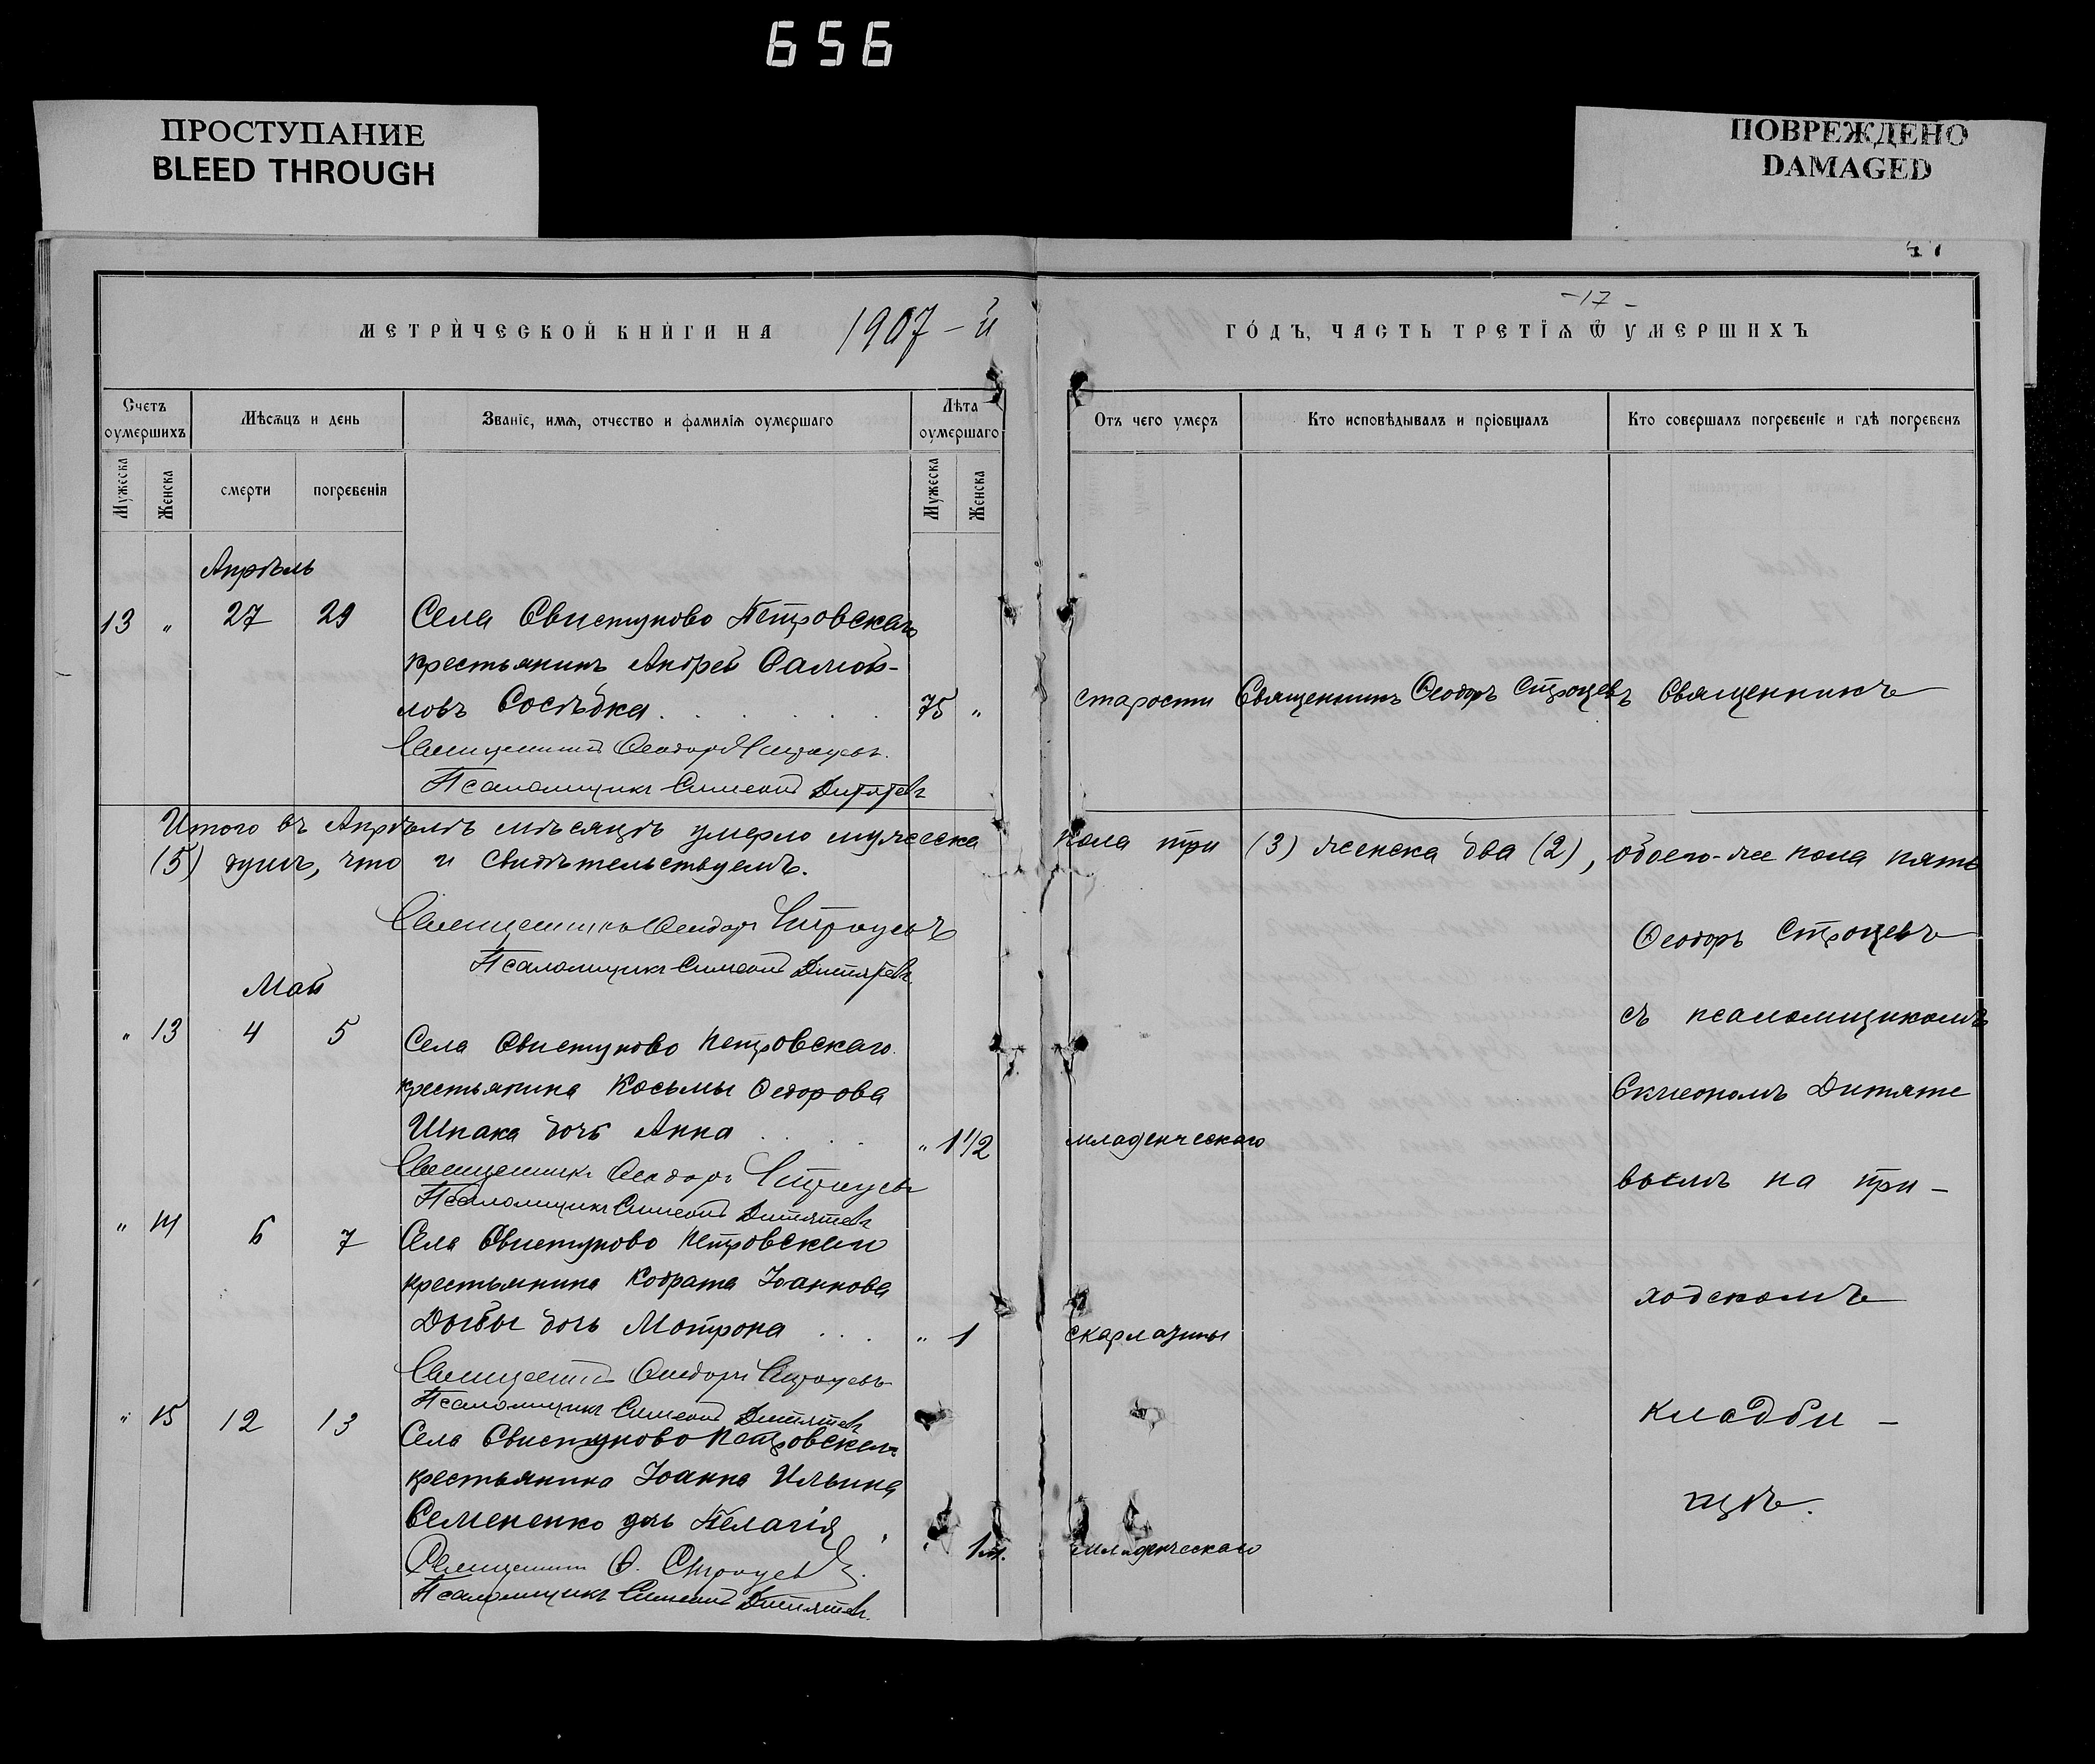 656
ПРОСТУПАНИЕ
BLEED THROUGH
ПОВРЕЖДЕНО
DAMAGED
47
-17-
МЕТРИЧЕСКОЙ КНИГИ НА 1907-й
ГОДЪ, ЧАСТЬ ТРЕТІѦ Ѿ УМЕРШИХЪ
Счетъ оумершихъ
Мужеска
Женска
Мѣсѧцъ и день
смерти
погребенія
Званіе, имѧ, отчество и фамиліѧ оумершаго
Лѣта оумершаго
Мужеска
Женска
Отъ чего умеръ
Кто исповѣдывалъ и пріобщалъ
Кто совершалъ погребеніе и гдѣ погребенъ
Апрѣль
13 " 27 29 Села Свистуново Петровскаго
крестьянинъ Андрей Самой-
ловъ Сосѣдка . . . . . 75 " старости Священникъ Ѳеодоръ Строцевъ Священникъ
Священникъ Ѳеодоръ Строцевъ.
Псаломщикъ Симеонъ Дитятевъ
Итого въ Апрѣлѣ мѣсяцѣ умерло мужеска пола три (3) женска два (2), обоего-же пола пять
(5) душъ, что и свидѣтельствуемъ.
Священникъ Ѳеодоръ Строцевъ
Псаломщикъ Симеонъ Дитятевъ.
Ѳеодоръ Строцевъ
Май
съ псаломщикомъ
" 13 4 5 Села Свистуново Петровскаго
крестьянина Косьмы Ѳедорова
Симеономъ Дитяте
Шпака дочь Анна . . . . " 1 1/2 младенческаго
Священникъ Ѳеодоръ Строцевъ
Псаломщикъ Симеонъ Дитятевъ
вымъ на при-
" 14 6 7 Села Свистуново Петровскаго
крестьянина Кодрата Іоаннова
ходскомъ
Дыбы дочь Матрона . . . " 1 скарлатины
Священникъ Ѳеодоръ Строцевъ
Псаломщикъ Симеонъ Дитятевъ
кладби-
" 15 12 13 Села Свистуново Петровскаго
крестьянина Іоанна Ильина
щѣ.
Семененко дочь Пелагія " 1 м. младенческаго
Священникъ Ѳ. Строцевъ.
Псаломщикъ Симеонъ Дитятевъ.